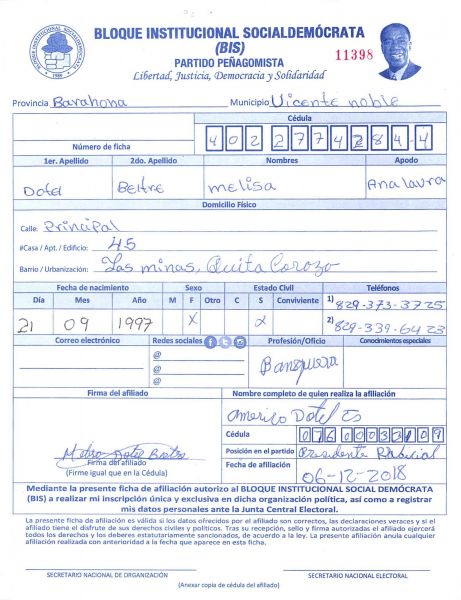 BLOQUE INSTITUCIONAL SOCIALDEMÓCRATA
(BIS)
PARTIDO PEÑAGOMISTA
Libertad, Justicia, Democracia y Solidaridad
11398
BLOQUE INSTITUCIONAL SOCIALDEMOCRATA
BIS
Provincia Barahona Municipio Vicente noble
Cédula
Número de ficha 402 2774284-4
1er. Apellido 2do. Apellido Nombres Apodo
Dotel Beltre melisa Ana laura
Domicilio Físico
Calle: Principal
#Casa / Apt. / Edificio: 45
Barrio / Urbanización: Las minas, Quita Corozo
Fecha de nacimiento Sexo Estado Civil Teléfonos
Día Mes Año M F Otro C S Conviviente 1) 829-373-3725
21 09 1997 X x 2) 829-339-6423
Correo electrónico Redes sociales Profesión/Oficio Conocimientos especiales
@
@
@
Firma del afiliado Nombre completo de quien realiza la afiliación
Americo Dotel
Cédula
Posición en el partido Presidente
Firma del afiliado
(Firme igual que en la Cédula)
Fecha de afiliación 06-12-2018
Mediante la presente ficha de afiliación autorizo al BLOQUE INSTITUCIONAL SOCIAL DEMÓCRATA
(BIS) a realizar mi inscripción única y exclusiva en dicha organización política, así como a registrar
mis datos personales ante la Junta Central Electoral.
La presente ficha de afiliación es válida si los datos ofrecidos por el afiliado son correctos, las declaraciones veraces y si el
afiliado tiene el disfrute de sus derechos civiles y políticos. Tras su recepción, sello y firma autorizadas el afiliado ejercerá
todos los derechos y los deberes estatutariamente sancionados, de acuerdo a la ley. La presente afiliación anula cualquier
afiliación realizada con anterioridad a la fecha que aparece en esta ficha.
SECRETARIO NACIONAL DE ORGANIZACIÓN SECRETARIO NACIONAL ELECTORAL
(Anexar copia de cédula del afiliado)